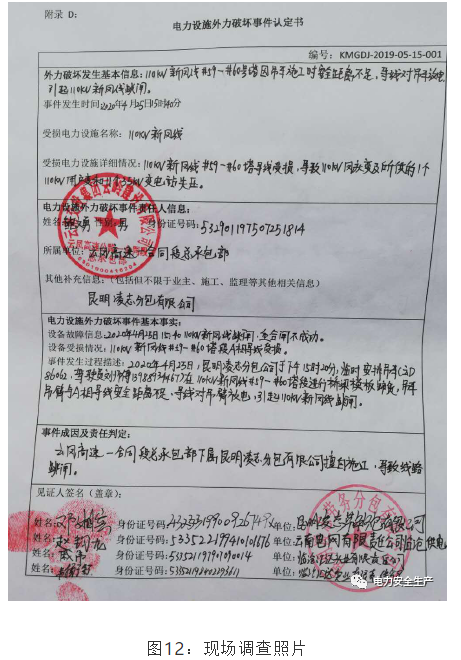 附录 D：
电力设施外力破坏事件认定书
编号：KMGDJ-2019-05-15-001
外力破坏发生基本信息：110kV新凤线#59-#60号塔因吊车施工时安全距离不足，导线对吊车放电
引起110kV新凤线跳闸。
事件发生时间2020年4月25日15时40分
受损电力设施名称：110kV新凤线
受损电力设施详细情况：110kV新凤线#59-#60塔导线受损，导致110kV凤
变电站失压。
电力设施外力破坏事件责任人信息：
姓名：勇 性别：男 身份证号码：532901197507251814
所属单位：云凤高速一合同段总承包部
其他补充信息：（包括但不限于业主、施工、监理等其他相关信息）
昆明凌志分包有限公司
电力设施外力破坏事件基本事实：
设备故障信息：2020年4月25日15:40 110kV新凤线跳闸，重合闸不成功。
设备受损情况：110kV新凤线#59-#60塔段A相导线受损。
事件发生过程描述：2020年4月25日，昆明凌志分包公司于下午15时20分，临时安排吊车
在110kV新凤线#59-#60塔段进行
吊臂与A相导线安全距离不足，导线对吊臂放电，引起110kV新凤线跳闸。
事件成因及责任判定：
云凤高速一合同段总承包部下属昆明凌志分包有限公司擅自施工，导致线路
跳闸。
见证人签名（盖章）：
姓名： 身份证号码： 单位：
姓名： 身份证号码： 单位：云南电网有限责任公司临沧供电
姓名： 身份证号码： 单位：
姓名： 身份证号码： 单位：
电力安全生产
图12：现场调查照片